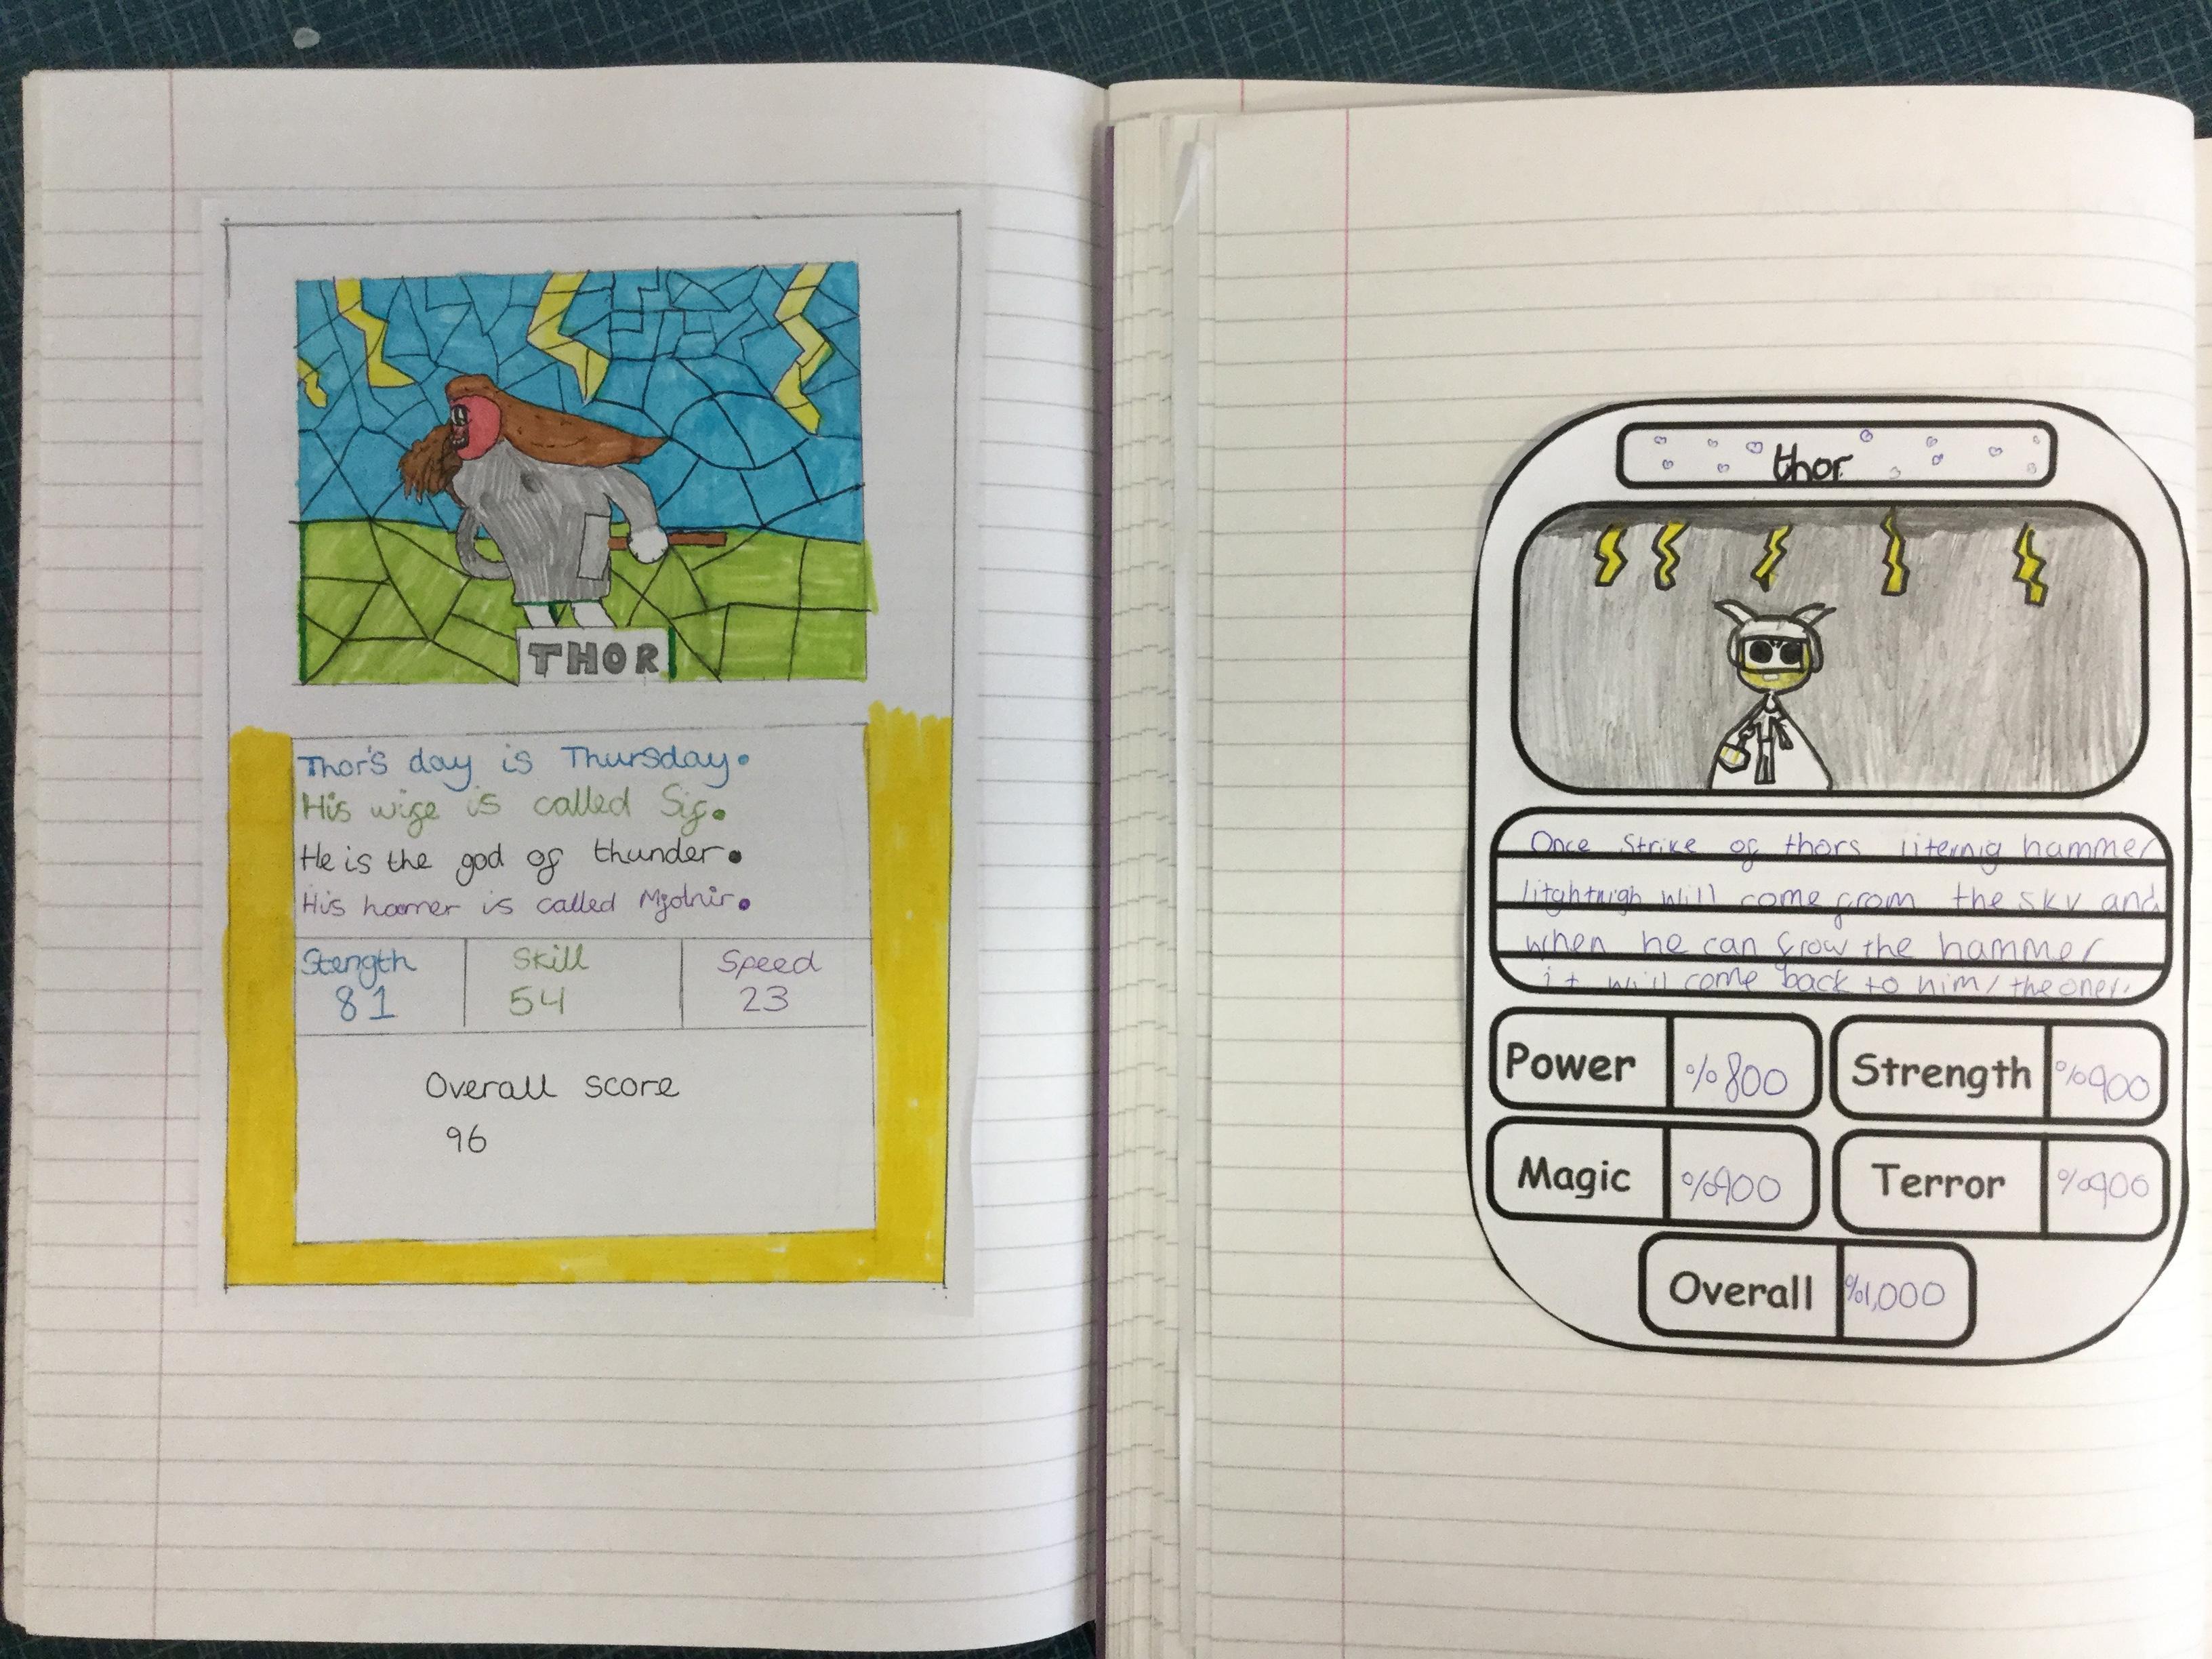 THOR
Thor's day is Thursday.
His wife is called Sif.
He is the god of thunder.
His hamer is called Mjolnir.
Stength
81
Skill
54
Speed
23
Overall score
96
thor
Once Strike of thors liternig hammer
litghtnigh will come from the sky and
when he can frow the hammer
it will come back to him/the oner.
Power %800
Strength %900
Magic %900
Terror %900
Overall %1,000